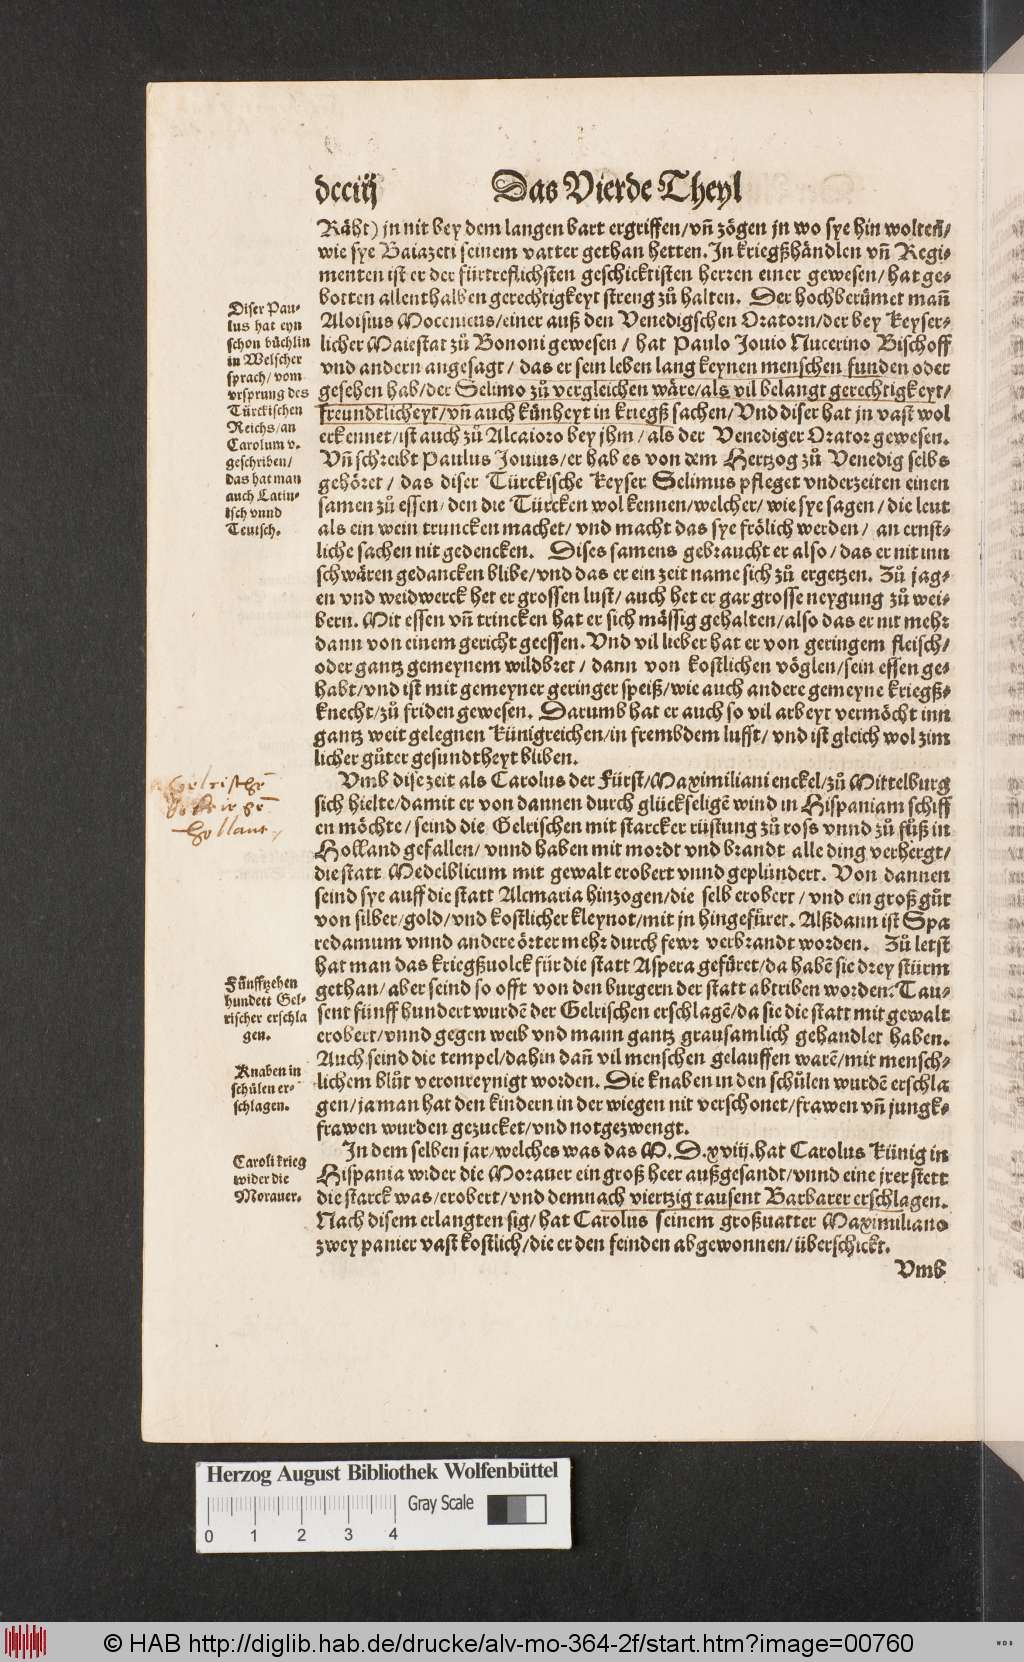 dcciij Das Vierde Theyl
Räht) jn nit bey dem langen bart ergriffen/vn̄ zögen jn wo sye hin wolten̄/
wie sye Baiazeti seinem vatter gethan hetten. In kriegßhändlen vn̄ Regi-
menten ist er der fürtreflichsten geschicktisten herren einer gewesen/hat ge-
botten allenthalben gerechtigkeyt streng zů halten. Der hochberümet man̄
Aloisius Mocenicus/einer auß den Venedigschen Oratorn/der bey Keyser-
licher Maiestat zů Bononi gewesen/ hat Paulo Iouio Nucerino Bischoff
vnd andern angesagt/ das er sein leben lang keynen menschen funden oder
gesehen hab/der Selimo zů vergleichen wäre/als vil belangt gerechtigkeyt/
freundtlicheyt/vn̄ auch künheyt in kriegß sachen/Vnd diser hat jn vast wol
erkennet/ist auch zů Alcaioro bey jhm/als der Venediger Orator gewesen.
Vn̄ schreibt Paulus Iouius/er hab es von dem Hertzog zů Venedig selbs
gehöret/ das diser Türckische Keyser Selimus pfleget vnderzeiten einen
samen zů essen/den die Türcken wol kennen/welcher/wie sye sagen/die leut
als ein wein truncken machet/vnd macht das sye frölich werden/ an ernst-
liche sachen nit gedencken. Dises samens gebraucht er also/das er nit inn
schwären gedancken blibe/vnd das er ein zeit name sich zů ergetzen. Zů jag-
en vnd weidwerck het er grossen lust/auch het er gar grosse neygung zů wei-
bern. Mit essen vn̄ trincken hat er sich mässig gehalten/also das er nit mehr
dann von einem gericht geessen. Vnd vil lieber hat er von geringem fleisch/
oder gantz gemeynem wildbret/ dann von kostlichen vöglen/sein essen ge-
habt/vnd ist mit gemeyner geringer speiß/wie auch andere gemeyne kriegß-
knecht/zů friden gewesen. Darumb hat er auch so vil arbeyt vermöcht inn
gantz weit gelegnen Künigreichen/in frembdem lufft/ vnd ist gleich wol zim
licher gůter gesundtheyt bliben.
Vmb dise zeit als Carolus der Fürst/Maximiliani enckel/zů Mittelburg
sich hielte/damit er von dannen durch glückseligē wind in Hispaniam schiff
en möchte/seind die Gelrischen mit starcker rüstung zů ross vnnd zů fůß in
Holland gefallen/ vnnd haben mit mordt vnd brandt alle ding verhergt/
die statt Medelblicum mit gewalt erobert vnnd geplündert. Von dannen
seind sye auff die statt Alcmaria hinzogen/die selb erobert/vnd ein groß gůt
von silber/gold/vnd kostlicher kleynot/mit jn hingefüret. Alßdann ist Spa
redamum vnnd andere örter mehr durch fewr verbrandt worden. Zů letst
hat man das kriegßuolck für die statt Aspera gefüret/da habē sie drey stürm
gethan/aber seind so offt von den burgern der statt abtriben worden. Tau-
sent fünff hundert wurdē der Gelrischen erschlagē/da sie die statt mit gewalt
erobert/vnnd gegen weib vnd mann gantz grausamlich gehandlet haben.
Auch seind die tempel/dahin dan̄ vil menschen gelauffen warē/mit mensch-
lichem blůt veronreynigt worden. Die knaben in den schůlen wurdē erschla
gen/ja man hat den kindern in der wiegen nit verschonet/frawen vn̄ jungk-
frawen wurden gezucket/vnd notgezwengt.
In dem selben jar/welches was das M.D.xviij.hat Carolus Künig in
Hispania wider die Morauer ein groß heer außgesandt/vnnd eine jrer stett
die starck was/erobert/vnd demnach viertzig tausent Barbarer erschlagen.
Nach disem erlangten sig/hat Carolus seinem großuatter Maximiliano
zwey panier vast kostlich/die er den feinden abgewonnen/überschickt.
Vmb
Diser Pau-
lus hat eyn
schon büchlin
in Welscher
sprach/vom
vrsprung des
Türckischen
Reichs/an
Carolum v.
geschriben/
das hat man
auch Latin-
isch vnnd
Teutsch.
Gelrischē
hollant
Fünfftzehen
hundert Gel-
rischer erschla
gen.
Knaben in
schůlen er-
schlagen.
Caroli krieg
wider die
Morauer.
Herzog August Bibliothek Wolfenbüttel
Gray Scale
0 1 2 3 4
© HAB http://diglib.hab.de/drucke/alv-mo-364-2f/start.htm?image=00760